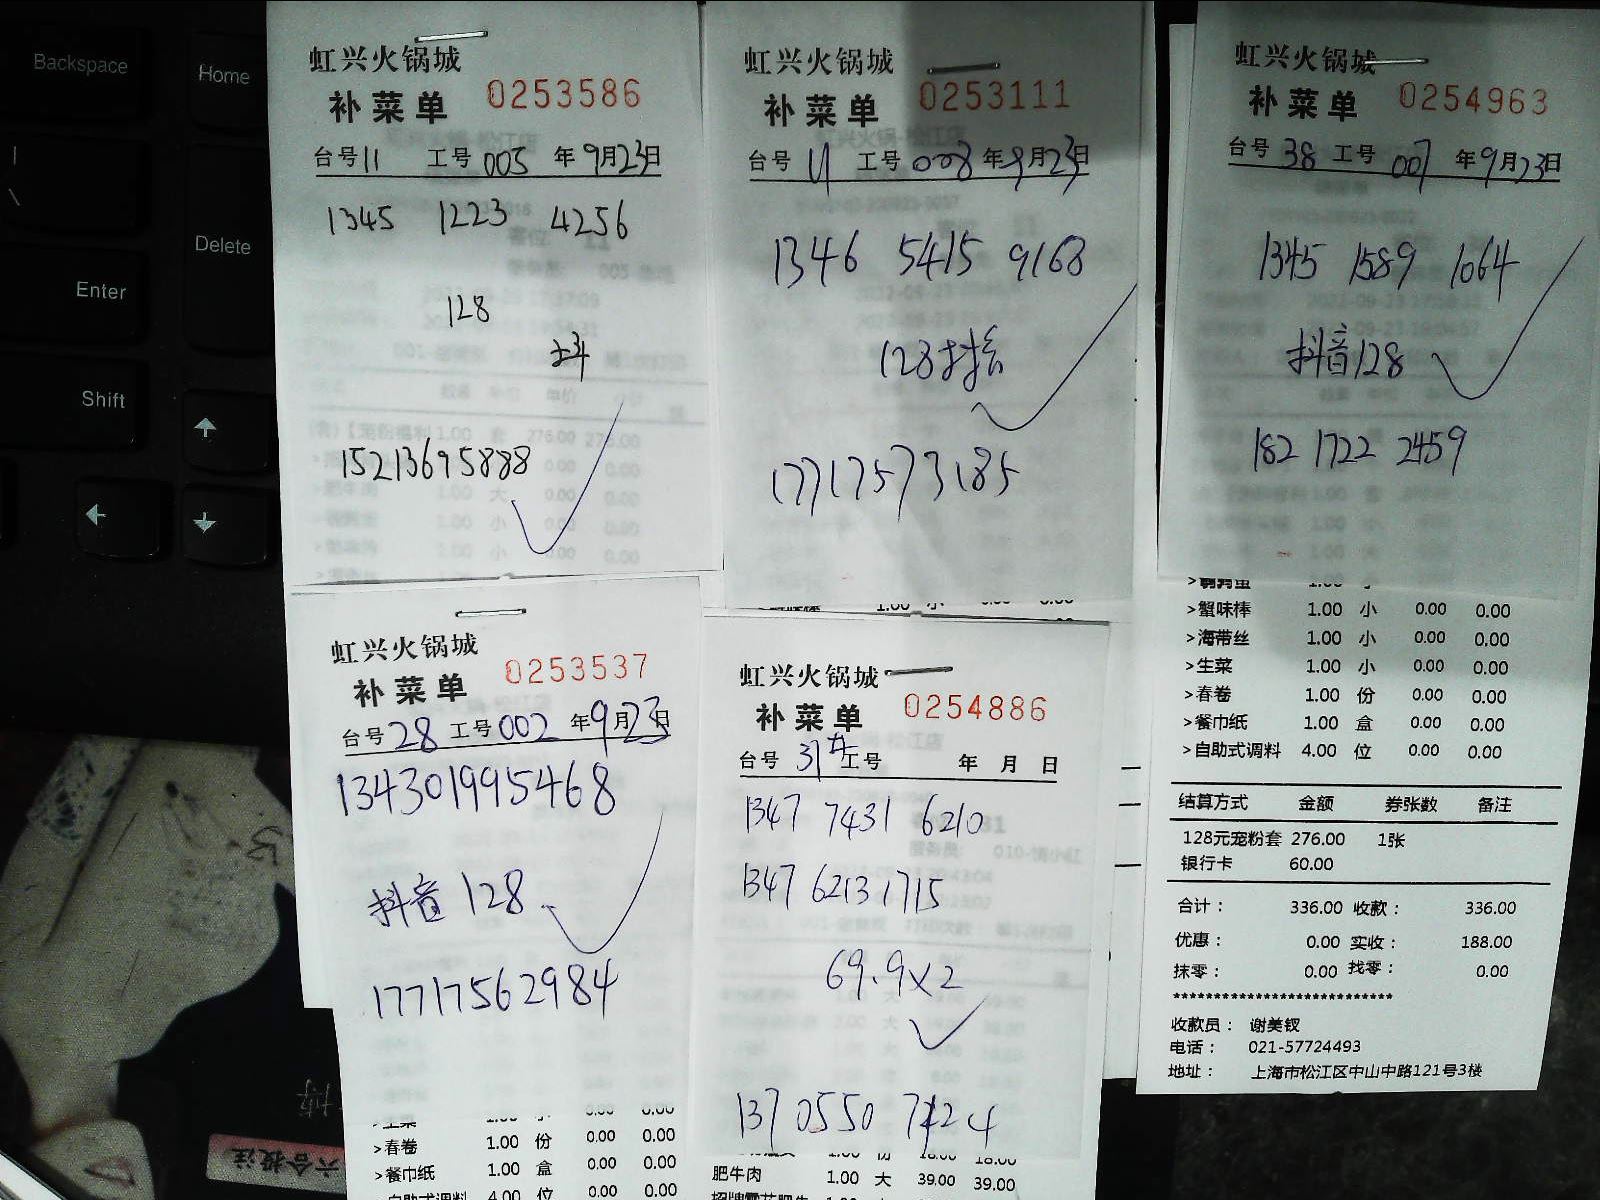 Backspace
Home
Delete
Enter
Shift
虹兴火锅城
补菜单 0253586
台号11 工号005 年9月23日
1345 1223 4256
128
抖
15213695888
虹兴火锅城
补菜单 0253111
台号11 工号008 年9月23日
1346 5415 9168
128抖音
17717573185
虹兴火锅城
补菜单 0254963
台号38 工号007 年9月23日
1345 1589 1064
抖音128
182 1722 2459
>蟹味棒 1.00 小 0.00 0.00
>海带丝 1.00 小 0.00 0.00
>生菜 1.00 小 0.00 0.00
>春卷 1.00 份 0.00 0.00
>餐巾纸 1.00 盒 0.00 0.00
>自助式调料 4.00 位 0.00 0.00
结算方式 金额 券张数 备注
128元宠粉套 276.00 1张
银行卡 60.00
合计： 336.00 收款： 336.00
优惠： 0.00 实收： 188.00
抹零： 0.00 找零： 0.00
***************************
收款员： 谢美钗
电话： 021-57724493
地址： 上海市松江区中山中路121号3楼
虹兴火锅城
补菜单 0253537
台号28 工号002 年9月23日
134301995468
抖音 128
17717562984
>春卷 1.00 份 0.00 0.00
>餐巾纸 1.00 盒 0.00 0.00
自助式调料 4.00 位 0.00 0.00
虹兴火锅城
补菜单 0254886
台号31# 工号 年 月 日
1347 7431 6210
1347 6213 1715
69.9×2
137 0550 7424
肥牛肉 1.00 大 39.00 39.00
六合投注